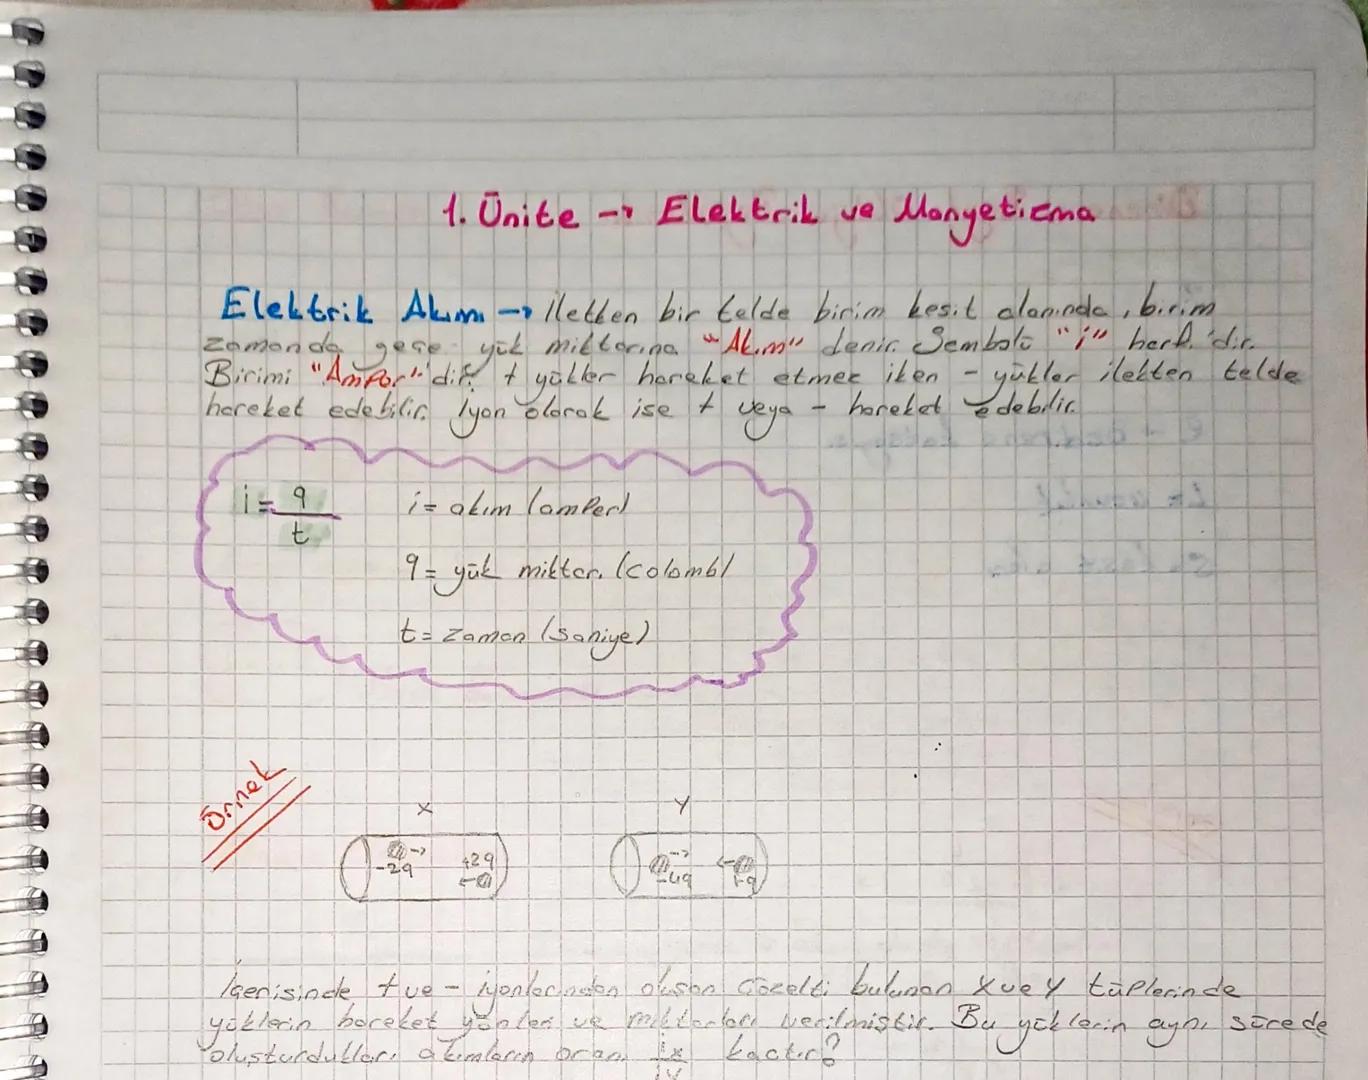 1. Ünite → Elektrik ve Manyetizma
Elektrik Akımı → İletken bir telde birim kesit alanında, birim
zamanda geçe yük miktarına "Akım" denir. Sembolü "i" harfi'dir.
Birimi "Amper"'dir. + yükler hareket etmez iken - yükler iletken telde
hareket edebilir. İyon olarak ise + veya - hareket edebilir.
i = q / t
i = akım (amper)
q = yük miktarı (colomb)
t = zaman (saniye)
Örnek
X Y
-2q +2q -4q
İçerisinde + ve - iyonlarından oluşan çözelti bulunan X ve Y tüplerinde
yüklerin hareket yönleri ve miktarları verilmiştir. Bu yüklerin aynı sürede
oluşturdukları akımların oranı ix / iy kaçtır?